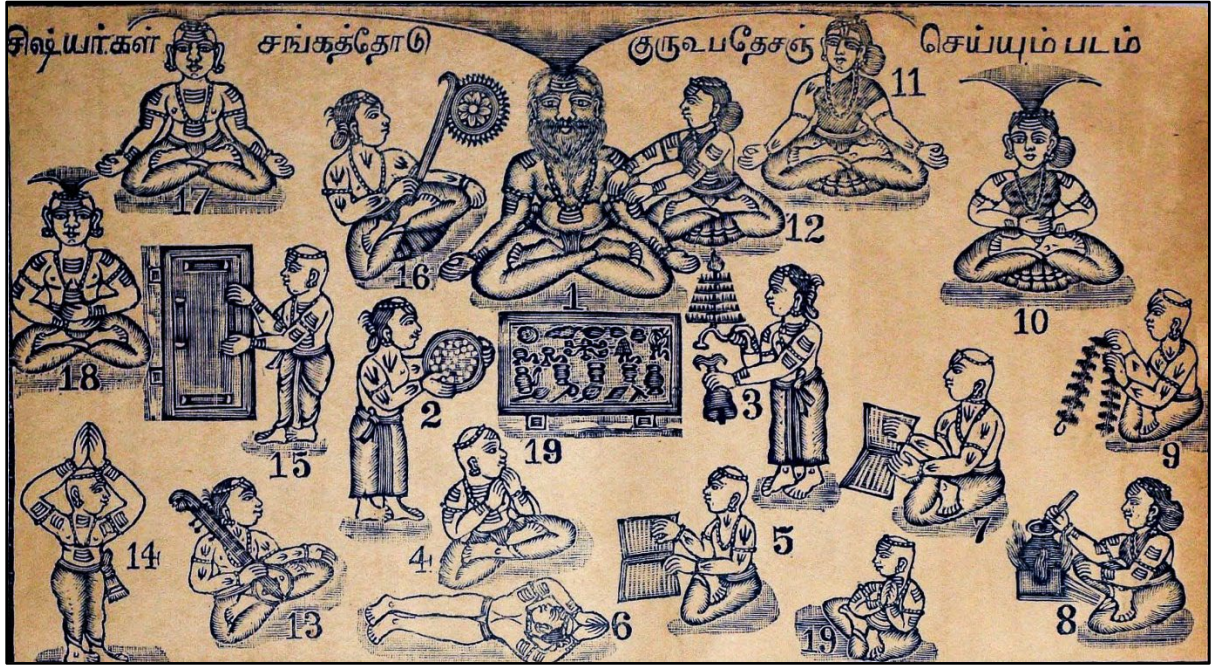 சிஷ்யர்கள் சங்கத்தோடு குருஉபதேசஞ் செய்யும் படம்
17
16
1
12
11
10
18
15
2
19
3
9
14
13
4
6
5
7
19
8